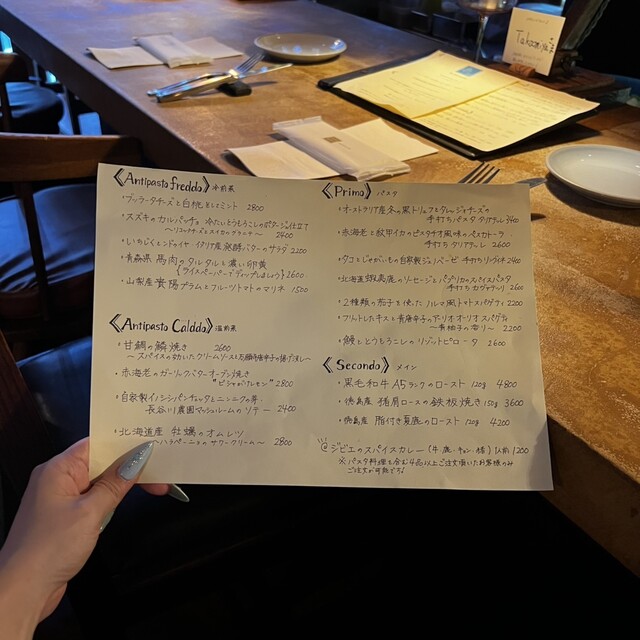 《Antipasto freddo》冷前菜
・ブッラータチーズと白桃とミント 2800
・スズキのカルパッチョ 冷たいとうもろこしのポタージュ仕立て
～リコッタチーズとスイカのグラニテ～ 2400
・いちじくとンドゥイヤ・イタリア産発酵バターのサラダ 2200
・青森県 馬肉のタルタルと濃い卵黄
(ライスペーパーでディップしましょう) 2600
・山梨産 貴陽プラムとフルーツトマトのマリネ 1500
《Antipasto Caldda》温前菜
・甘鯛の鱗焼き 2600
・赤海老のガーリックバターオーブン焼き
"ピシャのバナレモン" 2800
・自家製イノシシパンチェッタとニンニクの芽、
長谷川農園マッシュルームのソテー 2400
・北海道産 牡蠣のオムレツ
ハラペーニョのサワークリーム～ 2800
《Primo》パスタ
・オーストラリア産冬の黒トリュフとタレッジョチーズの
手打ちパスタ タリアテレ 3400
・赤海老と紋甲イカのピスタチオ風味のペスカトーラ
手打ち タリアテレ 2600
・タコとじゃがいもの自家製ジェノベーゼ 手打ちリングイネ 2400
・北海道蝦夷鹿のソーセージとパプリカのスパイスパスタ
手打ち カヴァテリ 2600
・2種類の茄子を使った ノルマ風トマトスパゲティ 2200
・フリットしたキスと青唐辛子のアーリオオーリオ スパゲティ
～青柚子の香り～ 2200
・鰻ととうもろこしのリゾットビアンコ 2600
《Secondo》メイン
・黒毛和牛 A5ランクのロースト 120g 4800
・徳島産 猪肩ロースの鉄板焼き 150g 3600
・徳島産 脂付き夏鹿のロースト 120g 4200
@ジビエのスパイスカレー(牛・鹿・キョン・猪) 1人前 1200
※パスタ料理も含む4品以上ご注文頂いたお客様のみ
ご注文が可能です♪